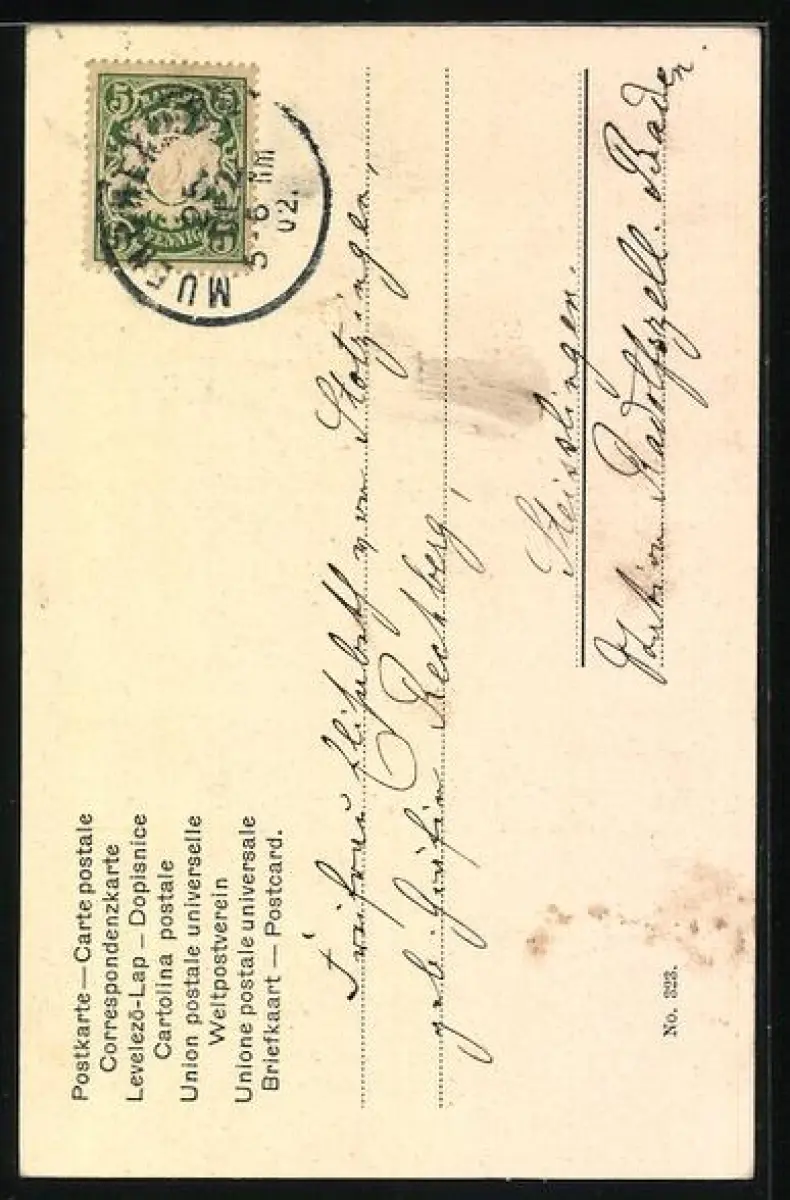 Postkarte — Carte postale
Correspondenzkarte
Levelezõ-Lap — Dopisnice
Cartolina postale
Union postale universelle
Weltpostverein
Unione postale universale
Briefkaart — Postcard.
5 5
PFENNIG
MUEN
25.
5-6 NM
02.
Freifrau Elisabeth von Stotzingen,
geb. Gräfin Rechberg,
Steisslingen.
Station Radolfszell. Baden.
No. 323.